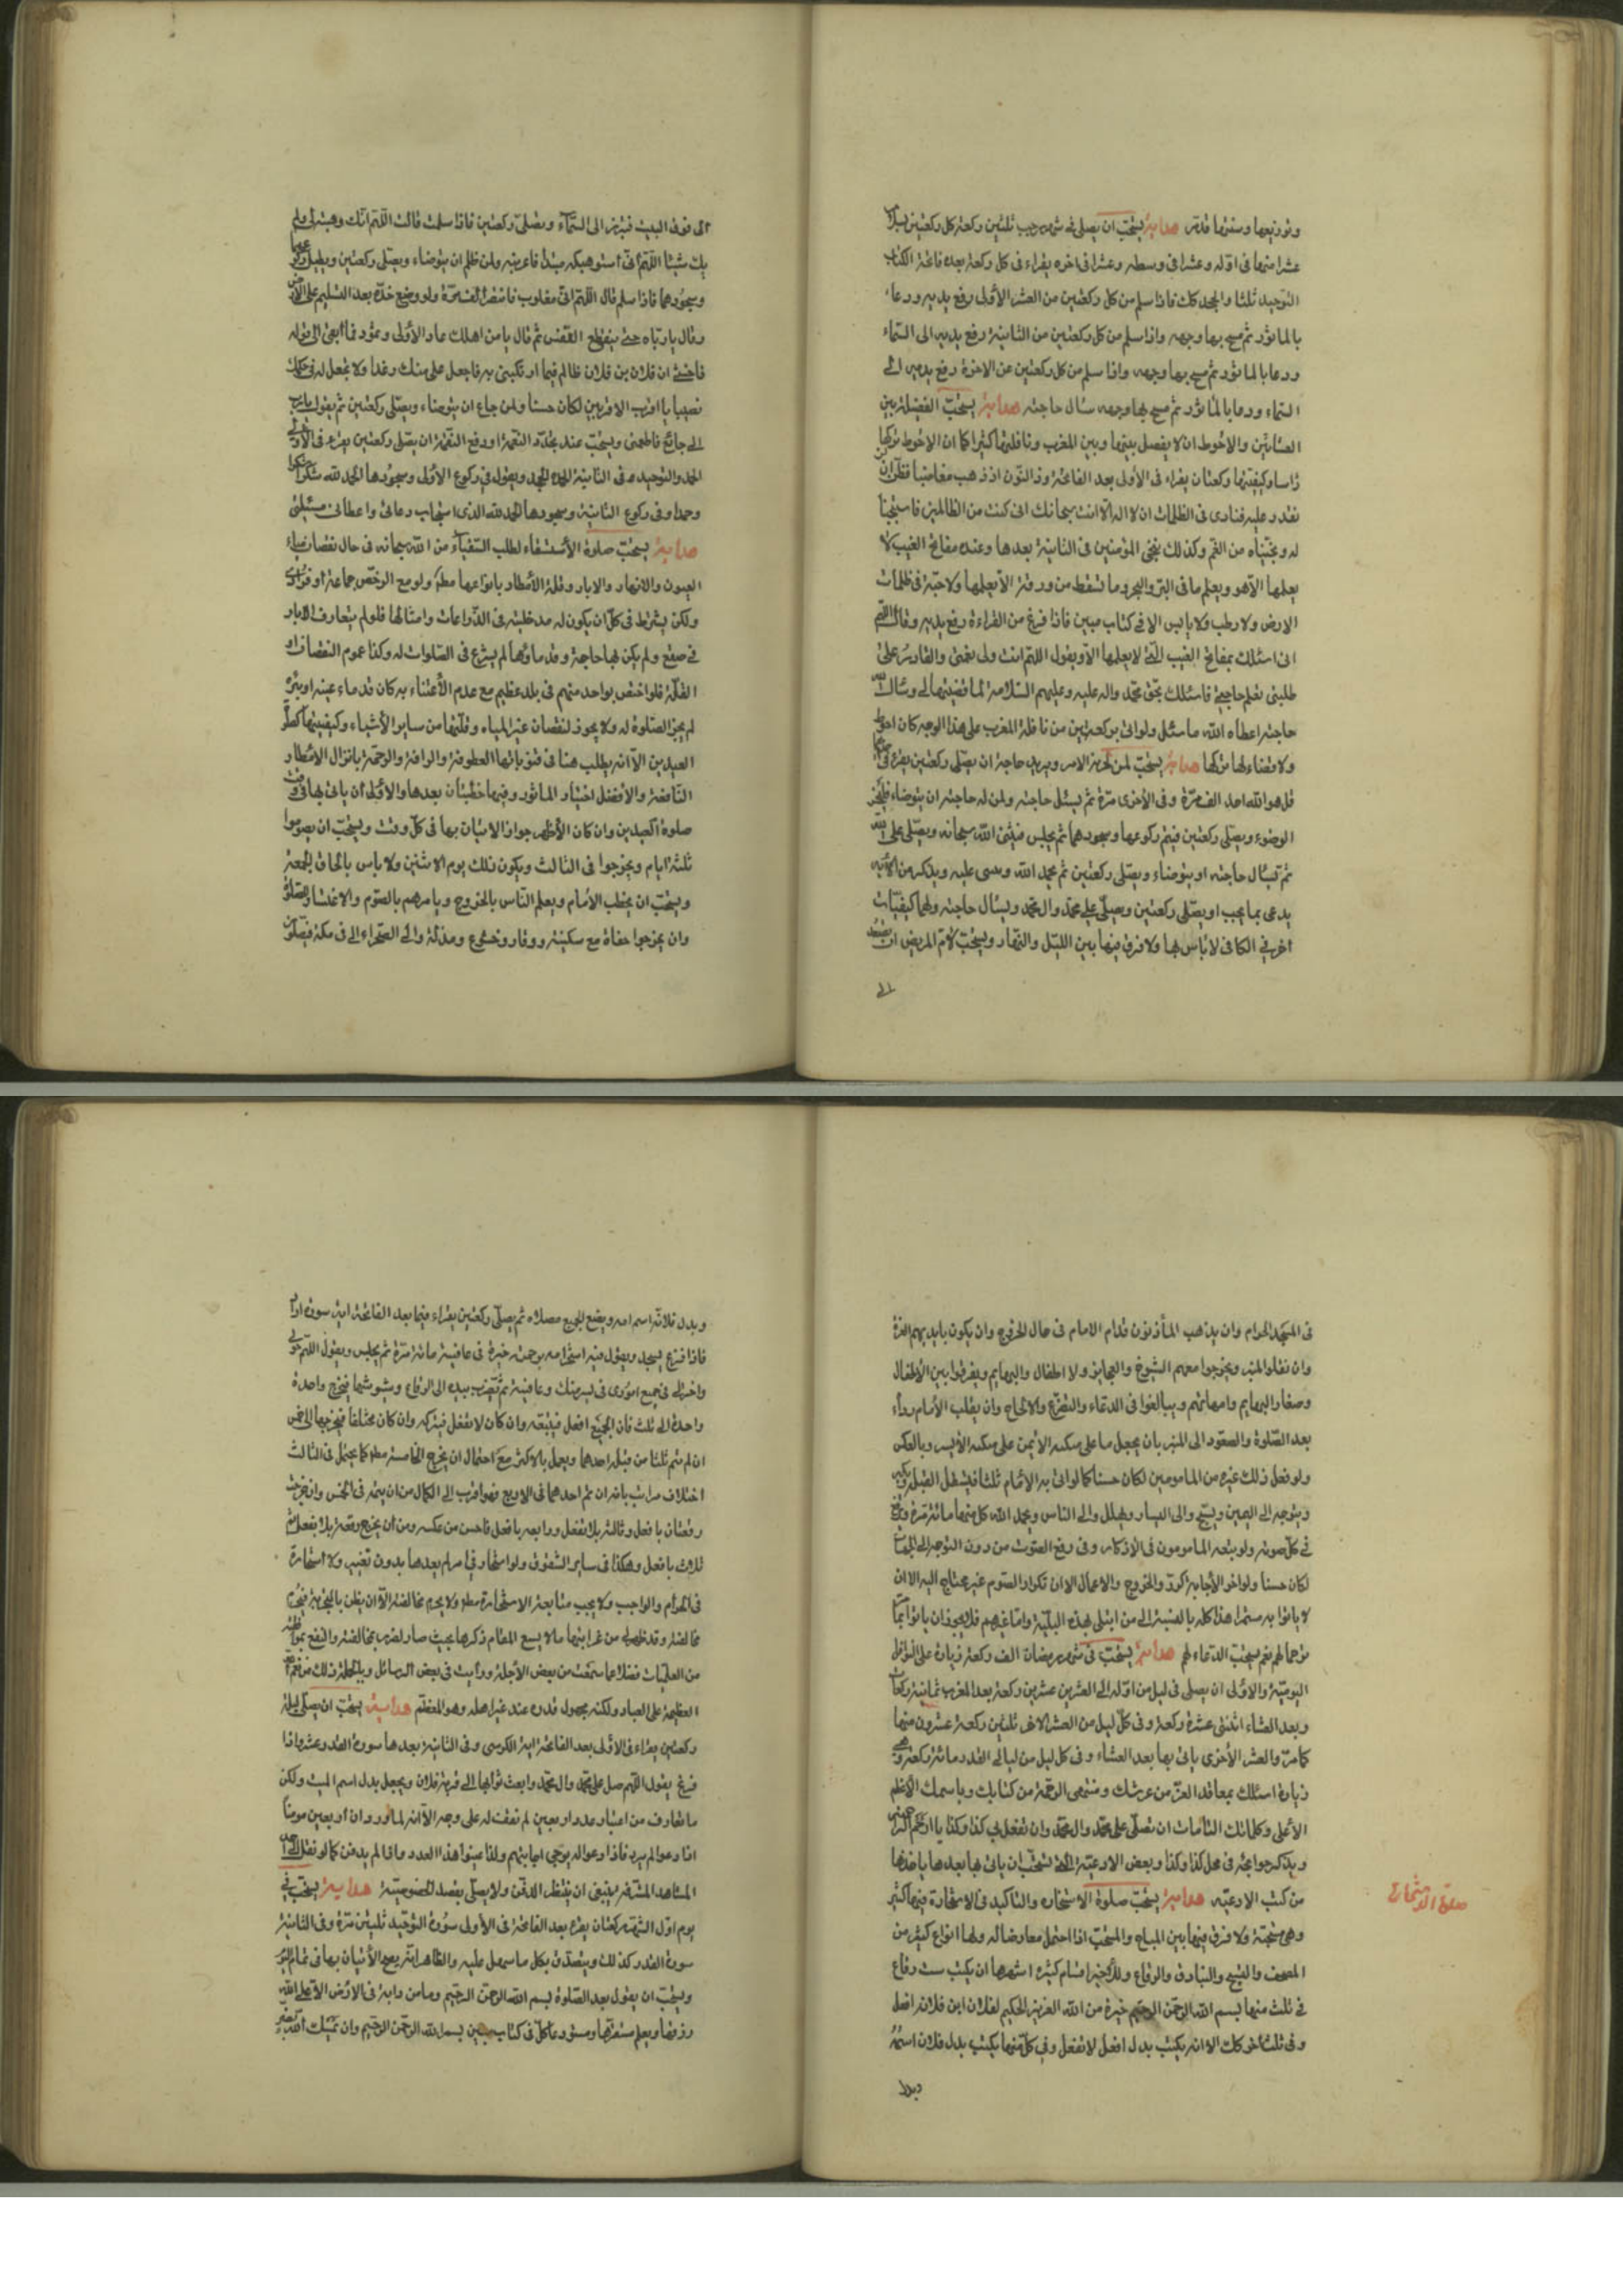 وتوزيعها وسننها قدمر هداية يستحب ان يصلى في شهر رجب ثلثين ركعة كل ركعتين
عشرا منها في اوله وعشرا في وسطه وعشرا في اخره يقراء في كل ركعة بعد فاتحة الكتاب
التوحيد ثلثا والجحد كك فاذا سلم من كل ركعتين من العشر الأولى رفع يديه ودعاء
بالماثور ثم مسح بها وجهه واذا سلم من كل ركعتين من الثانية رفع يديه الى السماء
ودعا بالماثور ثم مسح بها وجهه واذا سلم من كل ركعتين من الاخرة رفع يديه الى
السماء ودعا بالماثور ثم مسح بها وجهه سئال حاجته هداية يستحب الغفيلة بين
العشائين والاحوط ان لا يفصل بينها وبين المغرب ونافلتها كثيرا كما ان الاحوط تركها
راسا وكيفيتها ركعتان يقراء في الأولى بعد الفاتحة وذا النون اذ ذهب مغاضبا فظن ان
نقدر عليه فنادى في الظلمات ان لا اله الا انت سبحانك انى كنت من الظالمين فاستجبنا
له ونجيناه من الغم وكذلك ننجى المؤمنين في الثانية بعدها وعنده مفاتح الغيب لا
يعلمها الا هو ويعلم ما في البر والبحر وما تسقط من ورقة الا يعلمها ولا حبة في ظلمات
الارض ولا رطب ولا يابس الا في كتاب مبين فاذا فرغ من القراءة رفع يديه وقال اللهم
انى اسئلك بمفاتح الغيب التى لا يعلمها الا ويقول اللهم انت ولى نعمتى والقادر على
طلبتى تعلم حاجتى فاسئلك بحق محمد واله عليه وعليهم السلام لما قضيتها لى وسئال الله
حاجته اعطاه الله ما سئل ولو اتى بركعتين من نافلة المغرب على هذا الوجه كان احوط
ولا قضاء لها تركها هداية يستحب لمن الامر ويريد حاجة ان يصلى ركعتين يقرء في
قل هو الله احد الف مرة وفي الأخرى مرة ثم يسئل حاجته ولمن له حاجة ان يتوضاء
الوضوء ويصلى ركعتين فيتم ركوعها وسجودهما ثم يجلس فيثنى الله سبحانه ويصلى على
ثم تسئال حاجته او يتوضاء ويصلى ركعتين ثم يحمد الله ويثنى عليه ويذكر من
يدعى بما يحب او يصلى ركعتين ويصلى على محمد وال محمد ويسئال حاجته ولهما كيفيات
اخر في الكافى لا باس بها ولا فرق فيها بين الليل والنهار ويستحب لام المريض ان تصعد
الى
الى فوق البيت فتبرز الى السماء وتصلى ركعتين فاذا سلمت قالت اللهم انك وهبته لى ولم
يك شيئا اللهم انى استوهبكه مبتدأ فاعرنيه ولمن ظلم ان يتوضاء ويصلى ركعتين ويطيل
وسجودهما فاذا سلم قال اللهم انى مغلوب فانتصر الف مرة ولو وضع خده بعد التسليم على الارض
وقال يا رباه حتى ينقطع النفس ثم قال يا من اهلك عاد الأولى وثمود فما ابقى الى قوله
فاخشى ان فلان بن فلان ظالم فيما ارتكبنى به فاجعل على منك وعدا ولا تجعل له في حلمك
نصيبا يا اقرب الاقربين لكان حسنا ولمن جاع ان يتوضاء ويصلى ركعتين ثم يقول يا رب
انى جائع فاطعمنى ويستحب عند تجدد النعمة او دفع النقمة ان يصلى ركعتين يقرء في الاولى
الحمد والتوحيد وفي الثانية الحمد والجحد ويقول في ركوع الأولى وسجودها الحمد لله شكرا
وحمدا وفي ركوع الثانية وسجودها الحمد لله الذى استجاب دعائى واعطانى مسئلتى
هداية يستحب صلوة الأستسقاء لطلب السقياء من الله سبحانه في حال نقصان ماء
العيون والانهار والابار وقلة الأمطار بانواعها مطلقا ولو مع الرخص جماعة او فرادى
ولكن يشترط في كل ان يكون له مدخلية في الزراعات وامثالها فلو لم يتعارف الابار
في صقع ولم يكن لها حاجة وقد ماؤها لم يشرع في الصلوات له وكذا عموم النقصان او
القلة فلو اختص بواحد منهم في بلد عظيم مع عدم الأعتناء به كان قد ماء عينه او بئره
لم يجز الصلوة له ولا يجوز لنقصان غير المياه وقلتها من ساير الأشياء وكيفيتها كصلوة
العيدين الا انه يطلب هنا في قنوتاتها العطوفة والرافة والرحمة بانزال الامطار
النافعة والأفضل اختيار الماثور وفيها خطبتان بعدها والأولى ان ياتى بها في وقت
صلوة العيدين وان كان الأظهر جواز الاتيان بها في كل وقت ويستحب ان يصوموا
ثلثة ايام ويخرجوا في الثالث ويكون ذلك يوم الاثنين ولا باس بالحاق الجمعة
ويستحب ان يخطب الأمام ويعلم الناس بالخروج ويامرهم بالصوم والاغتسال
وان يخرجوا حفاة مع سكينة ووقار وخشوع ومذلة والى الصحراء الا في مكة فيصلون
في المسجد الحرام وان يذهب المأذنون قدام الامام في حال الخروج وان يكون بايديهم العنزة
وان نقلوا المنبر ويخرجوا معهم الشيوخ والعجايز ولا اطفال والبهايم ويفرقوا بين الأطفال
وصغار البهايم وامهاتهم ويبالغوا في الدعاء والتضرع والالحاح وان يقلب الأمام رداء
بعد الصلوة والصعود الى المنبر بان يجعل ما على منكبه الأيمن على منكبه الأيسر وبالعكس
ولو فعل ذلك غيره من المامومين لكان حسنا كما لو اتى به الأمام ثلثا فيستقبل القبلة
ويتوجه الى اليمين ويسبح والى اليسار ويهلل والى الناس ويحمد الله كل منها مائة مرة
في كل صوته ولو يتبعه المامومون في الاذكار وفي رفع الصوت من دون التوجه الى الجهات
لكان حسنا ولو اخر الأجابة كرر والخروج والاعمال الا ان تكرار الصوم غير محتاج اليه الا ان
لا ياتوا به مستمرا هذا كله بالنسبة الى من ابتلى بهذه البلية واما غيرهم فلا يجوز ان ياتوا بها
ترحما لهم نعم يستحب الدعاء لهم هداية يستحب في شهر رمضان الف ركعة زيادة على النوافل
اليومية والأولى ان يصلى في ليل من اوله الى العشرين عشرين ركعة بعد المغرب ثمانية ركعات
وبعد العشاء اثنتى عشرة ركعة وفي كل ليل من العشر الاخر ثلثين ركعة عشرون منها
كما مر والعشر الأخرى ياتى بها بعد العشاء وفي كل ليل من ليالى القدر مائة ركعة
زيادة اسئلك بمعاقد العز من عرشك ومنتهى الرحمة من كتابك وباسمك الاعظم
الأعلى وكلماتك التامات ان تصلى على محمد وال محمد وان تفعل بى كذا وكذا يا ارحم الراحمين
ويذكر حوايجه في محل كذا وكذا وبعض الادعية التى يستحب ان ياتى بها بعدها ياخذها
من كتب الادعيه هداية يستحب صلوة الاستخاره والتاكيد في الاستخارة فيها كثير
وهى مستحبة ولا فرق فيها بين المباح والمستحب اذا احتمل معارضا له ولها انواع كثيره من
المصحف والسبح والبنادق والرقاع وللأخير اقسام كثيره اشهرها ان يكتب ست رقاع
في ثلث منها بسم الله الرحمن الرحيم خيرة من الله العزيز الحكيم لفلان ابن فلانة افعل
وفي ثلث اخر كك الا انه يكتب بدل افعل لا تفعل وفي كل منها يكتب بدل فلان اسمه
وبدل
صلوة الاستخاره
وبدل فلانة اسم امه ويضع الجميع مصلاه ثم يصلى ركعتين يقراء فيها بعد الفاتحة اية سورة اراد
فاذا فرغ يسجد ويقول فيه استخر الله برحمته خيرة في عافية مائة مرة ثم يجلس ويقول اللهم خر لى
واختر لى في جميع امورى في يسر منك وعافية ثم يضرب بيده الى الرقاع ويشوشها فيخرج واحدة
واحدة الى ثلث فان الجميع افعل فيتبعه وان كان لا تفعل فيتركه وان كان مختلفا فيخرجها الى خمس
ان لم يتم ثلثا من قبل احدهما ويعمل بالاكثر مع احتمال ان يخرج الخامسة مطلقا كما يحتمل في الثالث
اختلاف مراتب بانه ان تم احدهما في الاربع فهو اقرب الى الكمال من ان يتم في الخمس وان خرجت
رقعتان بافعل وثالثه بلا تفعل ورابعه بافعل فاحسن من عكسه ومن ان يخرج رقعة بلا تفعل ثم
ثلاث بافعل وهكذا في ساير الشقوق ولو استخار في امر لم يعدها بدون تغيير ولا استخارة
في الحرام والواجب ولا يجب متابعة الاستخارة مطلقا ولا يحرم مخالفتها الا ان يظن بالتجربة
مخالفته وقد ظهر لى من غرايبها ما لا يسع المقام ذكرها بحيث صار لضرر بمخالفته والنفع
من العلميات فضلا عما سمعت من بعض الأجلة ورأيت في بعض الرسائل وبالجملة ذلك من نعم الله
العظيمة على العباد ولكنه مجهول قدره عند غير اهله وهو المعظم هداية يستحب ان يصلى ليلة
ركعتين يقراء في الأولى بعد الفاتحة اية الكرسى وفي الثانية بعدها سورة القدر عشرا فاذا
فرغ يقول اللهم صل على محمد وال محمد وابعث ثوابها الى قبر فلان ويجعل بدل اسم الميت ولكن
ما تعارف من اعتبار عدد اربعين لم نقف له على وجه الا انه لما ورد ان اربعين مومنا
اذا دعوا لم يرد فاذا دعوا له يرجى اجابتهم ولذا عينوا هذا العدد وما لم يدفن كما لو نقل الى
المشاهد المشرفه ينبغى ان ينتظر الدفن ولا يصلى بقصد الخصوصية هداية يستحب في
يوم اول الشهر ركعتان يقرء بعد الفاتحة في الأولى سورة التوحيد ثلثين مرة وفي الثانية
سورة القدر كذلك ويتصدق بكل ما سهل عليه والظاهر انه يصح الأتيان بها في تمام اليوم
ويستحب ان يقول بعد الصلوة بسم الله الرحمن الرحيم وما من دابة في الارض الا على الله
رزقها ويعلم مستقرها ومستودعها كل في كتاب مبين بسم الله الرحمن الرحيم وان يمسك الله بضر